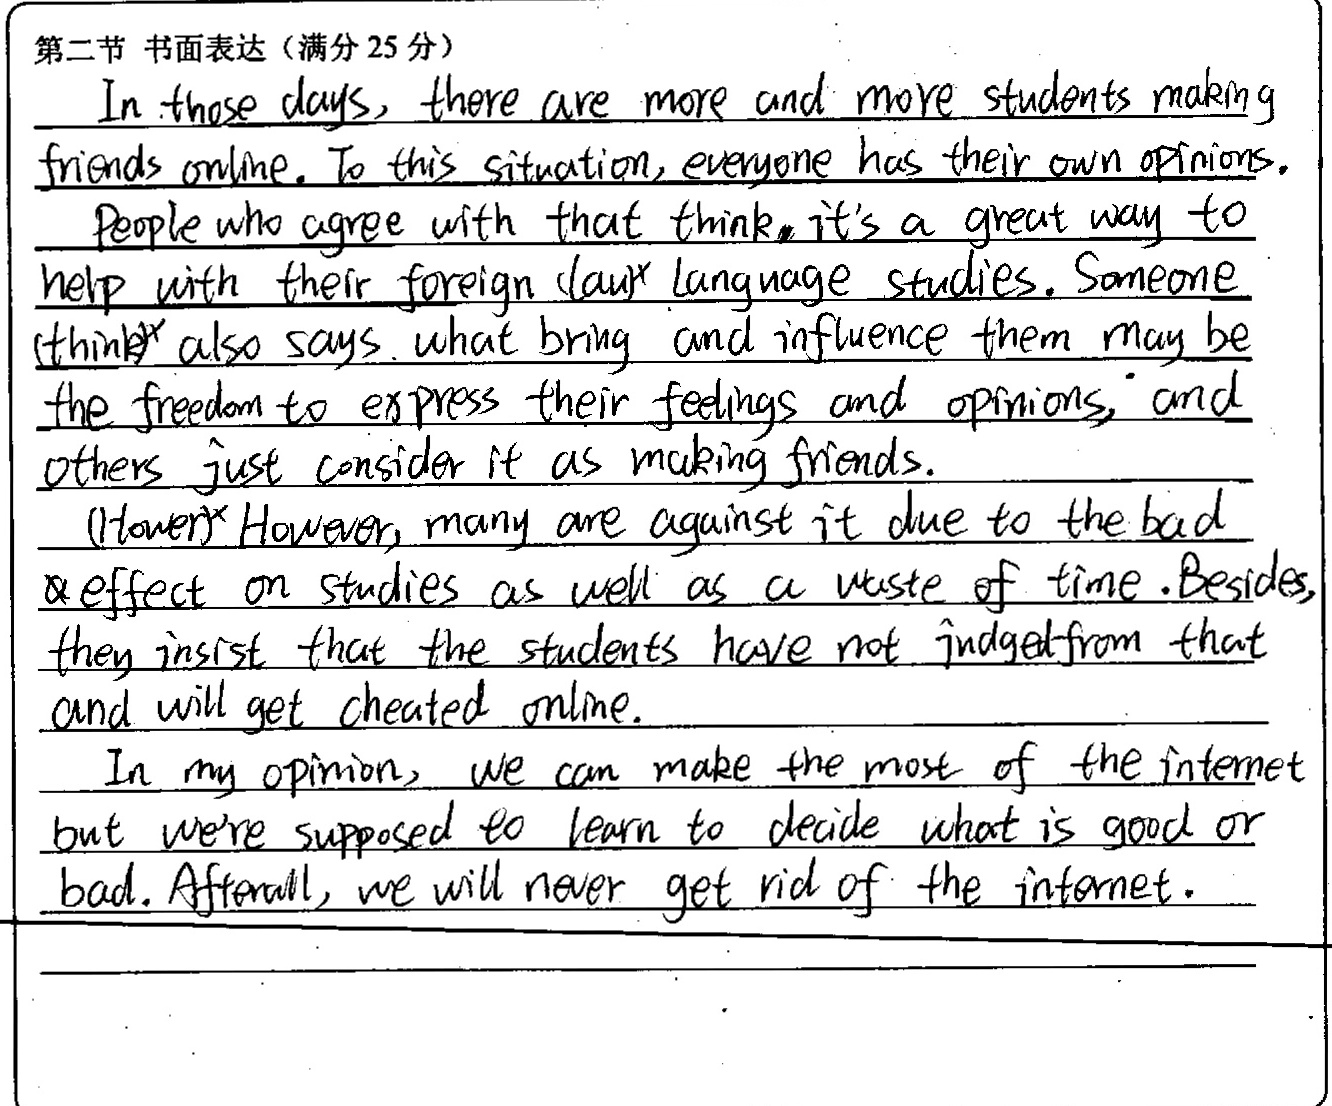 第二节 书面表达（满分 25 分）
In those days, there are more and more students making
friends online. To this situation, everyone has their own opinions.
People who agree with that think it's a great way to
help with their foreign (lau)× language studies. Someone
(think)× also says what bring and influence them may be
the freedom to express their feelings and opinions, and
others just consider it as making friends.
(Hower)× However, many are against it due to the bad
effect on studies as well as a waste of time. Besides,
they insist that the students have not judged from that
and will get cheated online.
In my opinion, we can make the most of the internet
but we're supposed to learn to decide what is good or
bad. Afterall, we will never get rid of the internet.